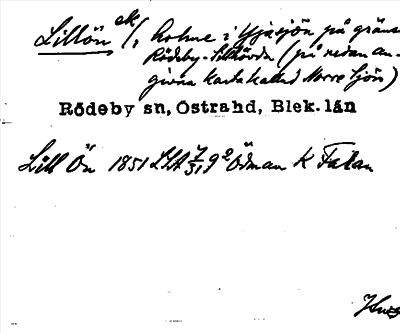 Lillön ek. /, holme i Yjasjön på gränsen
Rödeby-Sillhövda (på nedan an-
givna karta kallad Norre Sjön)
Rödeby sn, Östrahd, Blek. län
Lill Ön 1851 LSA 7/31 9² Ödman K Falan